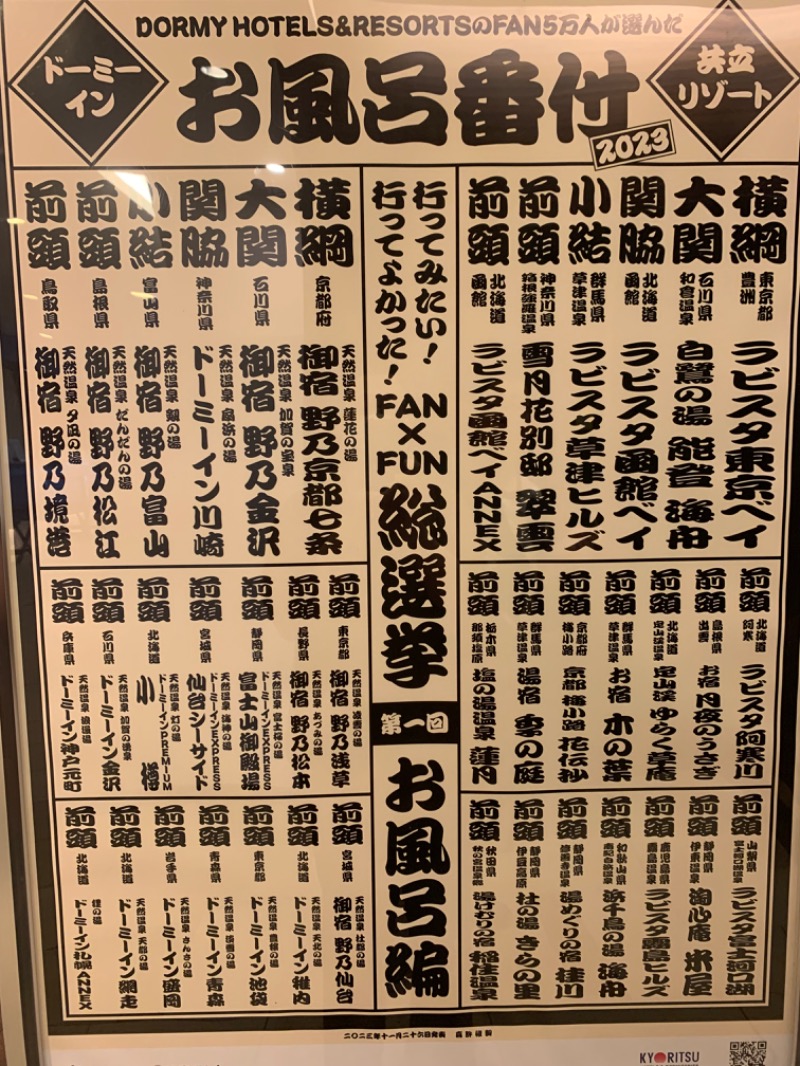 DORMY HOTELS&RESORTSのFAN5万人が選んだ
ドーミー
イン
お風呂番付
2023
共立
リゾート
横綱 東京都 豊洲 ラビスタ東京ベイ
大関 石川県 和倉温泉 白鷺の湯 能登 海舟
関脇 北海道 函館 ラビスタ函館ベイ
小結 群馬県 草津温泉 ラビスタ草津ヒルズ
前頭 神奈川県 箱根強羅温泉 雪月花別邸 翠雲
前頭 北海道 函館 ラビスタ函館ベイANNEX
前頭 北海道 阿寒 ラビスタ阿寒川
前頭 島根県 出雲 お宿 月夜のうさぎ
前頭 北海道 定山渓温泉 定山渓 ゆらく草庵
前頭 群馬県 草津温泉 お宿 木の葉
前頭 京都府 梅小路 京都 梅小路 花伝抄
前頭 群馬県 草津温泉 湯宿 季の庭
前頭 栃木県 那須塩原 塩の湯温泉 蓮月
前頭 山梨県 富士河口湖温泉 ラビスタ富士河口湖
前頭 静岡県 伊東温泉 淘心庵 米屋
前頭 鹿児島県 霧島温泉 ラビスタ霧島ヒルズ
前頭 和歌山県 南紀白浜温泉 浜千鳥の湯 海舟
前頭 静岡県 修善寺温泉 湯めぐりの宿 桂川
前頭 静岡県 伊豆高原 杜の湯 きらの里
前頭 秋田県 秋の宮温泉郷 湯けむりの宿 稲住温泉
行ってみたい!
行ってよかった!
FAN
×
FUN
総選挙
第一回
お風呂編
横綱 京都府 天然温泉 蓮花の湯 御宿 野乃京都七条
大関 石川県 天然温泉 加賀の宝泉 御宿 野乃金沢
関脇 神奈川県 天然温泉 扇浜の湯 ドーミーイン川崎
小結 富山県 天然温泉 剱の湯 御宿 野乃富山
前頭 島根県 天然温泉 だんだんの湯 御宿 野乃松江
前頭 鳥取県 天然温泉 夕凪の湯 御宿 野乃境港
前頭 東京都 天然温泉 凌雲の湯 御宿 野乃浅草
前頭 長野県 天然温泉 あづみの湯 御宿 野乃松本
前頭 静岡県 天然温泉 富士桜の湯 ドーミーインEXPRESS 富士山御殿場
前頭 宮城県 天然温泉 海神の湯 ドーミーインEXPRESS 仙台シーサイド
前頭 北海道 天然温泉 灯の湯 ドーミーインPREMIUM 小樽
前頭 石川県 天然温泉 加賀の湧泉 ドーミーイン金沢
前頭 兵庫県 天然温泉 浪漫湯 ドーミーイン神戸元町
前頭 宮城県 天然温泉 杜都の湯 御宿 野乃仙台
前頭 北海道 天然温泉 天北の湯 ドーミーイン稚内
前頭 東京都 天然温泉 豊穣の湯 ドーミーイン池袋
前頭 青森県 天然温泉 ドーミーイン青森
前頭 岩手県 天然温泉 さんさの湯 ドーミーイン盛岡
前頭 北海道 天然温泉 天都の湯 ドーミーイン網走
前頭 北海道 狸の湯 ドーミーイン札幌ANNEX
二〇二三年十一月二十六日発表
KYORITSU